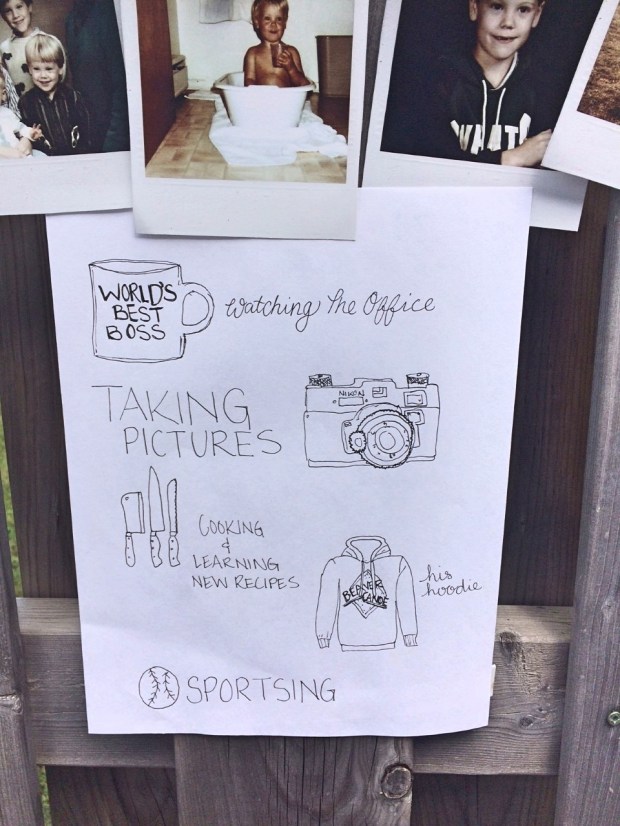 WHAT!
WORLD'S
BEST
BOSS
Watching The Office
TAKING
PICTURES
NIKON
COOKING
&
LEARNING
NEW RECIPES
BEAVER
CANOE
his
hoodie
SPORTSING